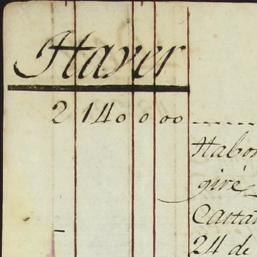 Haver
2 140 0 00
Habon
giré
Cartan
24 de